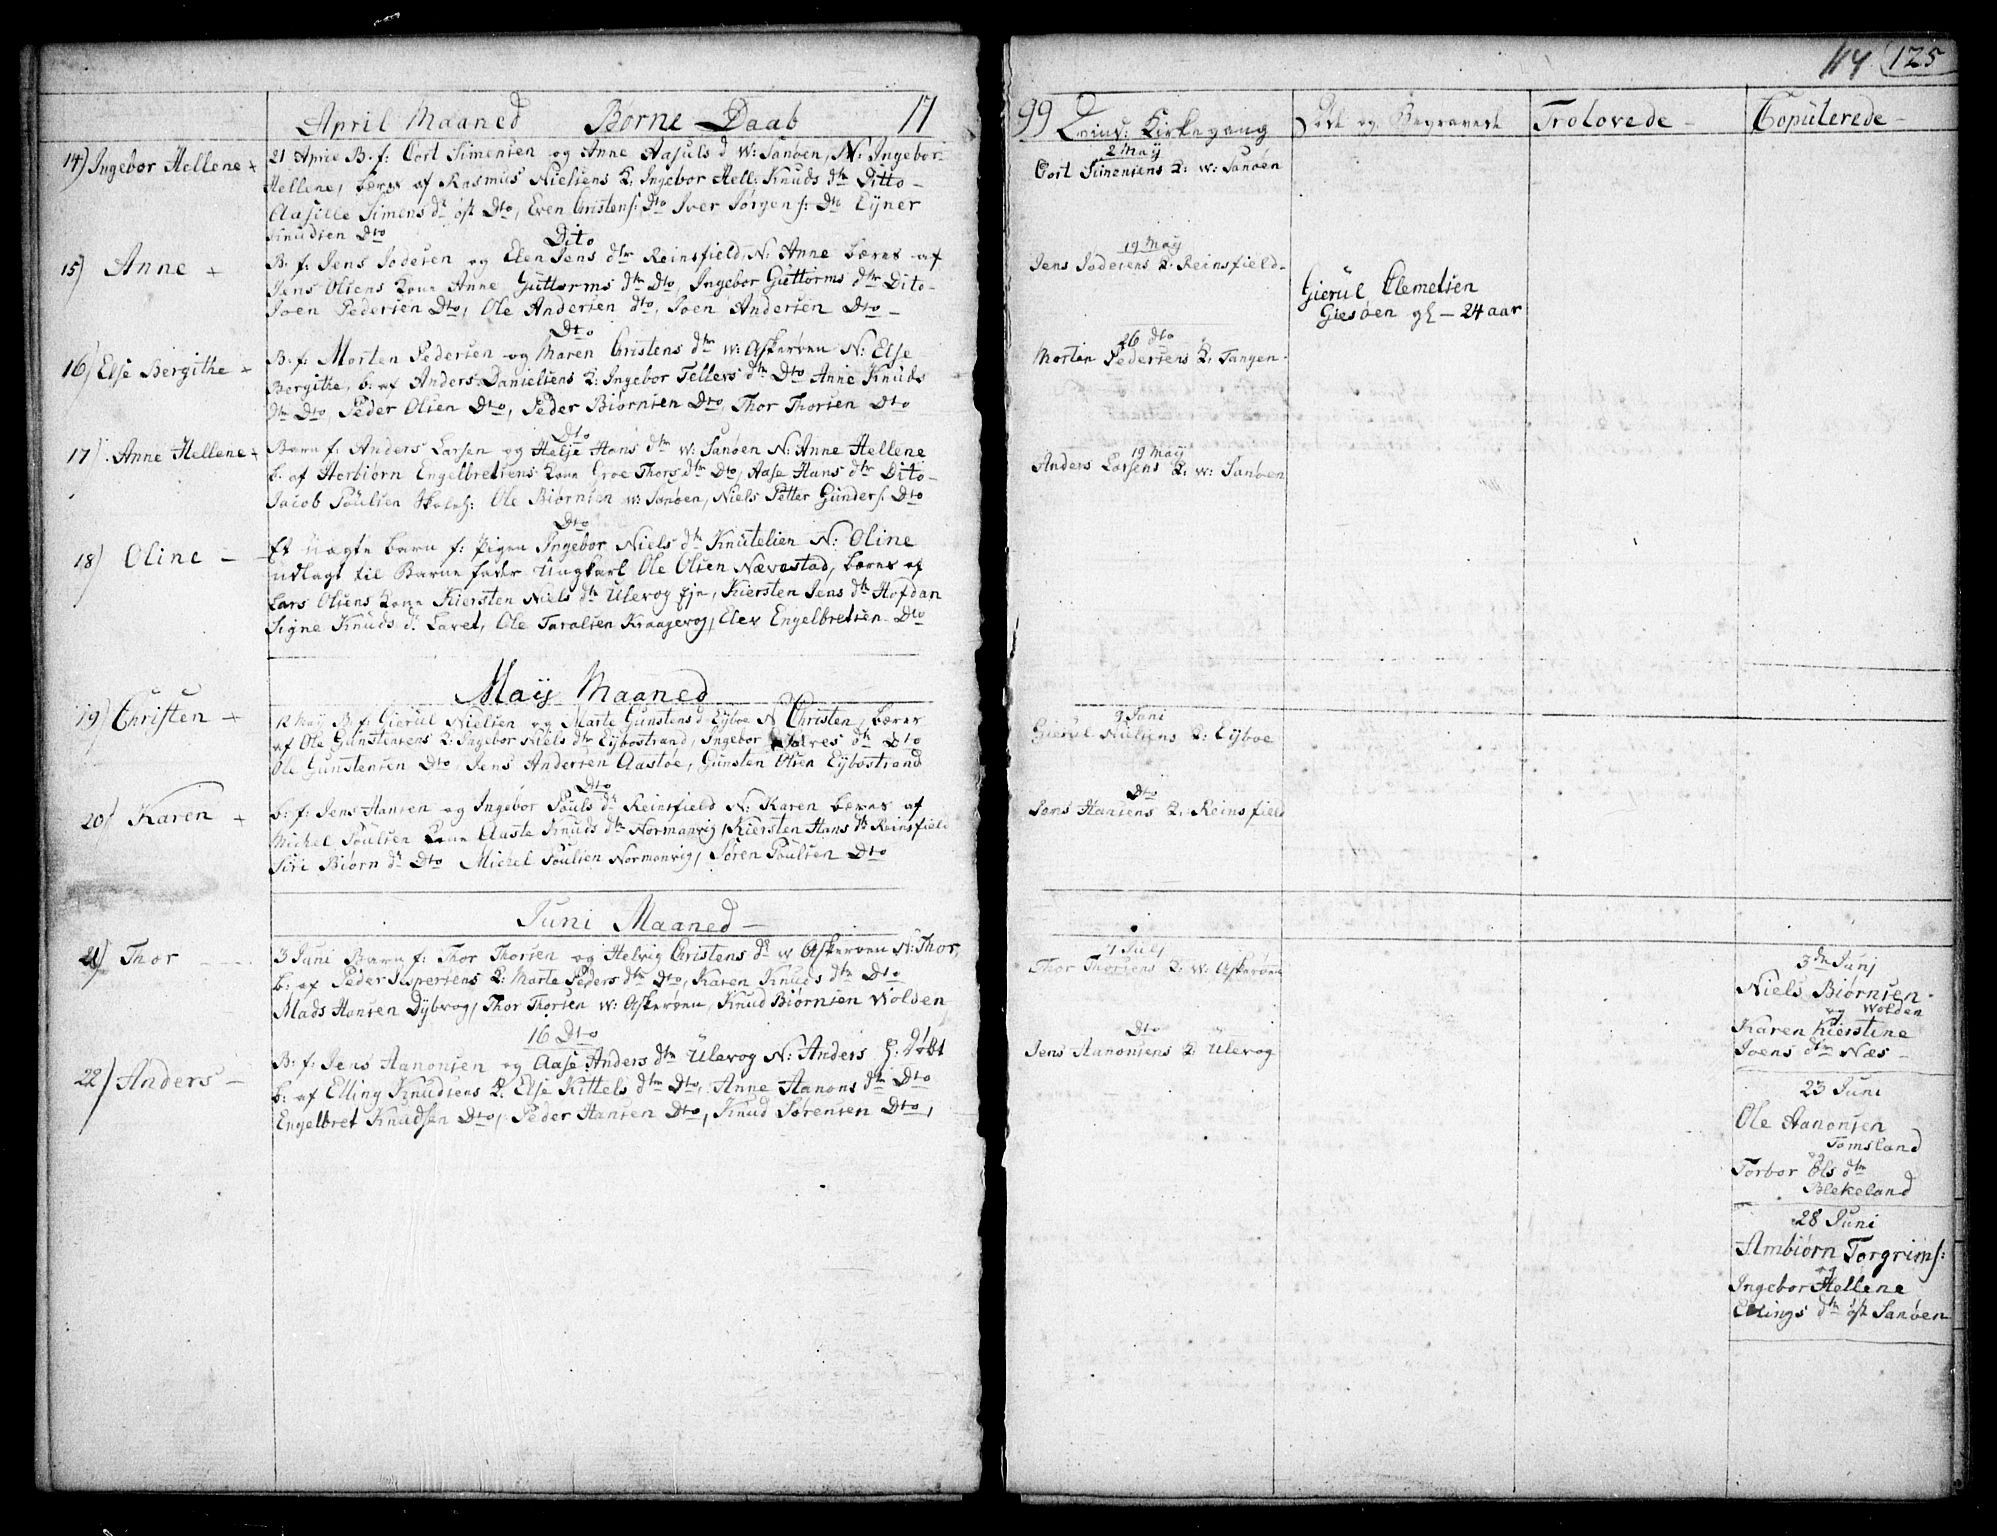 April Maaned Børne Daab 17
14) Ingebor Hellene +
21 April B. f: Cort Simensen og Anne Aasuls d W: Sanøen, N: Ingebor
Hellene, bæres af Rasmus Nielsens K. Ingebor Hell: Knuds dtr Ditto
Aasille Simens dr øst Dto, Even Cristens: Dto Iver Jørgens: Dto Eyner
Knudsen Dto
Dito
15) Anne +
B. f. Jens Todesen og Elen Jens dtr Reinsfield, N: Anne bæres af
Jens Olsens Kone Anne Guttorms dtr Dto, Ingebor Guttorms dtr Dito
Joen Pedersen Dto, Ole Andersen dto, Joen Andersen Dto
Dto
16) Else Bergithe +
B. f. Morten Pedersen og Maren Cristens dtr W: Askerøen N: Else
Bergithe, b: af Anders Danielsens K: Ingebor Tellers dtr Dto Anne Knuds
dtr Dto, Peder Olsen Dto, Peder Biørnsen Dto, Thor Thorsen Dto
Dto
17) Anne Hellene +
Barn f. Anders Larsen og Helje Hans dtr W: Sanøen N: Anne Hellene
b. af Torbiørn Engelbretsens Kone Groe Thors dtr Dto, Aase Hans dtr Dito
Jacob Poulsen Skoleh: Ole Biørnsen W: Sanøen, Niels Petter Gunders: Dto
Dto
18) Oline
Et Uægte barn f: Pigen Ingebor Niels dtr Knutelien N: Oline
udlagt til Barne fader Ungkarl Ole Olsen Nævestad, bæres af
Lars Olsens Kone Kiersten Niels dtr Ulevog Eje, Kiersten Jens dtr Hofdan
Signe Knuds d. Lavet, Ole Taralsen Kraagevog, Elev Engelbretsen Dto
May Maaned
19) Christen +
12 May B. f. Gierul Nielsen og Marte Gunstens d Eyboe N Christen, bæres
af Ole Gunstensens K: Ingebor Niels dtr Eybostrand, Ingebor Halvres dtr Dto
Ole Gunstensen Dto, Jens Andersen Aastøe, Gunsten Olsen Eybostrand
Dto
20) Karen +
b: f: Jens Hansen og Ingebor Pouls dr Reinsfield N: Karen bæres af
Michel Poulsen Kone Aaste Knuds dtr Normanvig, Kiersten Hans dtr Reinsfield
Siri Biørn dr Dto Michel Poulsen Normanvig, Søren Poulsen Dto
Juni Maaned
21) Thor
3 Juni Barn f: Thor Thorsen og Helvig Christens dr W Askerøen N: Thor,
b: af Peder Jespersens K: Marte Peders dtr Dto, Karen Knuds dtr Dto
Mads Hansen Dybvog, Thor Thorsen W: Askerøen, Knud Biørnsen Wolden
16 Dto
22) Anders
B. f: Jens Aanonsen og Aase Anders dtr Ulevog N: Anders H: Døbt
b: af Elling Knudsens K. Else Kittels dtr Dto, Anne Aanons dtr Dto
Engelbret Knudsen Dto, Peder Hansen Dto, Knud Sørensen Dto,
114 125
99 Qvind: Kirkegang
Døde og Begravede
Trolovede
Copulerede
2 May
Cort Simensens K: W: Sanøen
19 May
Jens Todesens K. Reinsfield
Gierul Clemetsen
Giesøen gl 24 aar
26 dto
Morten Pedersens K. Tangen
19 May
Anders Larsens K: W: Sanøen
9 Juni
Gierul Nielsens K: Eyboe
Dto
Jens Hansens K: Reinsfield
7 July
Thor Thorsens K: W: Askerøen
Dto
Jens Aanonsens K Ulevog
3de Junj
Niels Biørnsen
og Wolden
Karen Kierstine
Joens dtr Næs
23 Juni
Ole Aanonsen
Tomsland
og
Torbor Ols dtr
Blekeland
28 Juni
Ambiørn Torgrims:
og
Ingebor Hellene
Ellings dtr øst Sanøen